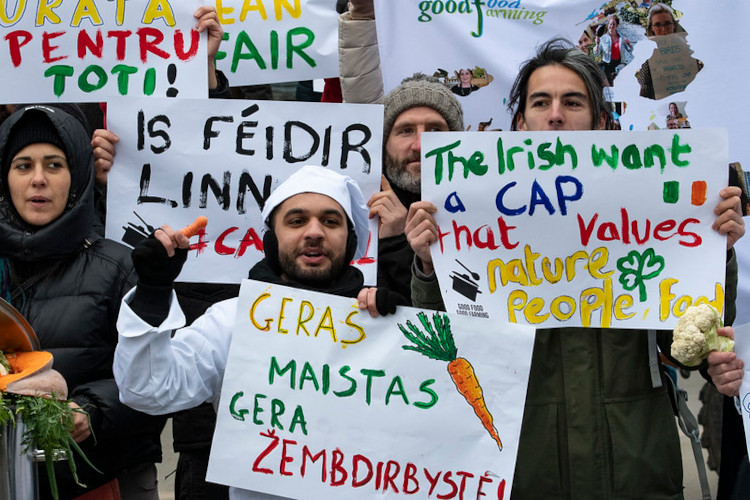 URATA
PENTRU
TOTI!
EAN
FAIR
good food
farming
IS FÉIDIR
LINN
#CA
The Irish want
a CAP
that Values
nature
People, Food
GOOD FOOD
GOOD FARMING
GERAS
MAISTAS
GERA
ŽEMBDIRBYSTĖ!